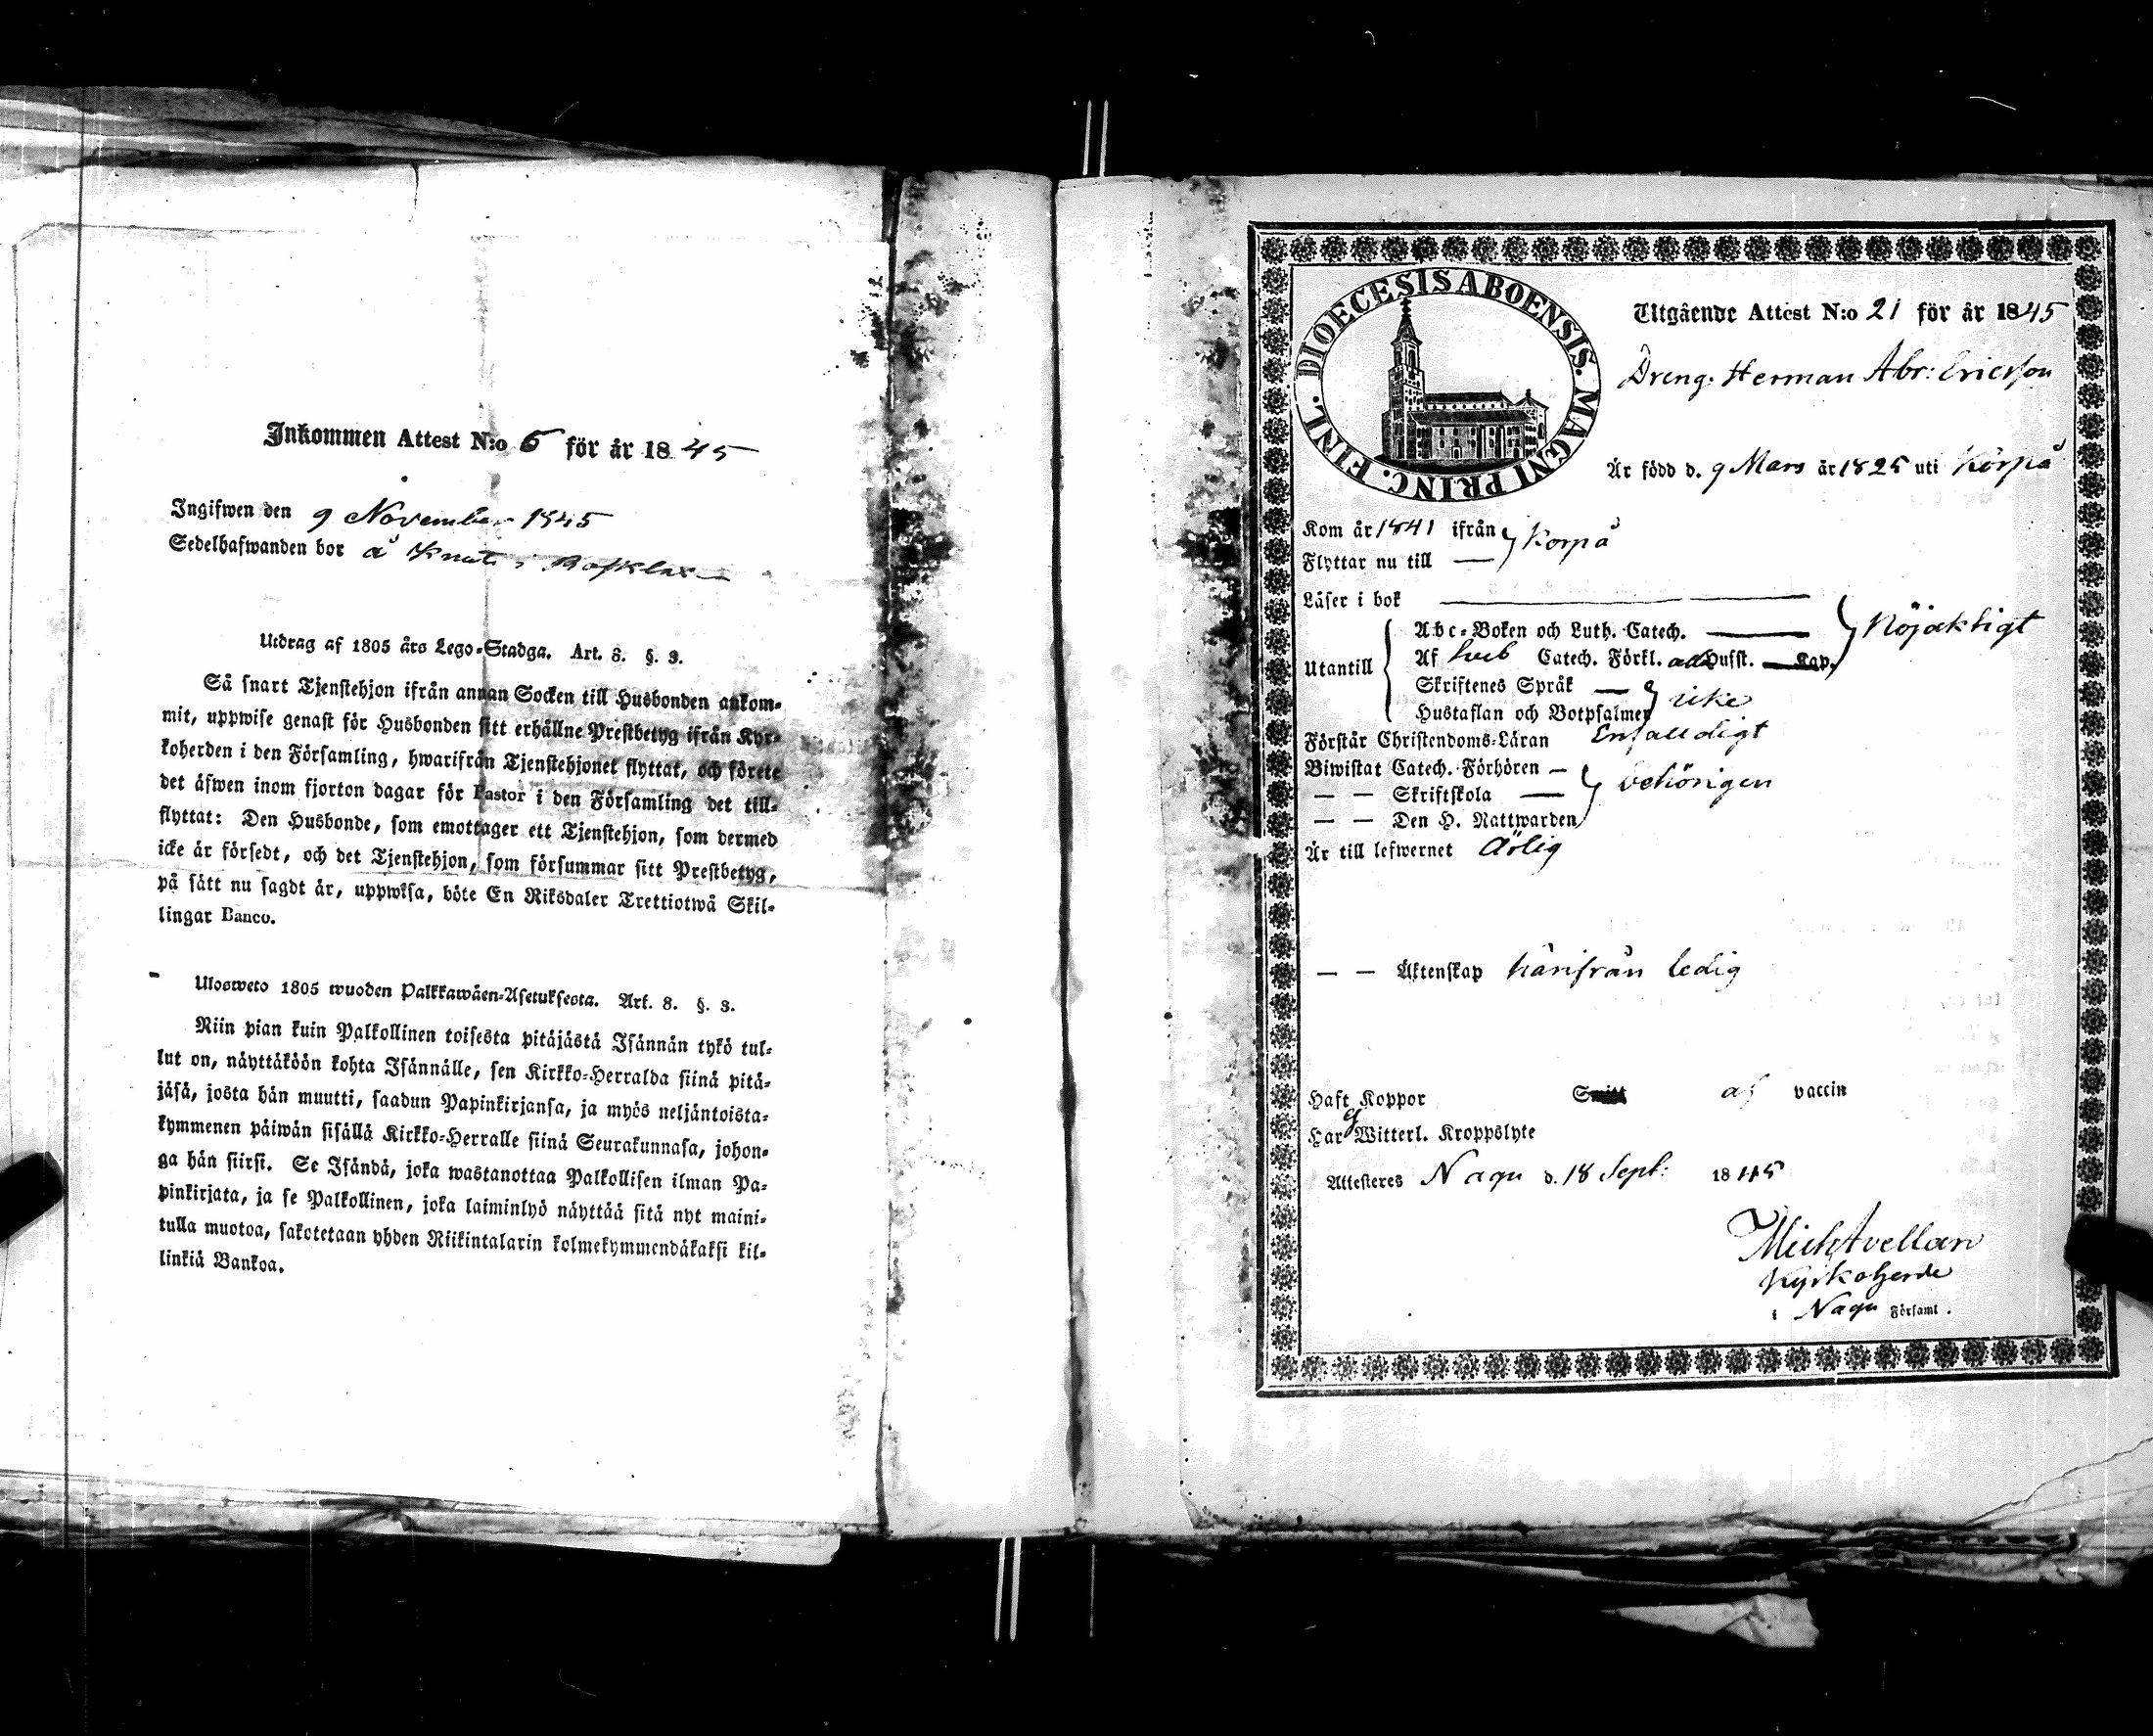 Inkommen Attest N:o 6 för år 1845
Ingifwen den 9 November 1845
Sedelhafwanden bor å Knuts i
Utdrag af 1805 års Lego-Stadga. Art. 8. §. 3.
Så snart Tjenstehjon ifrån annan Socken till Husbonden ankom-
mit, uppwise genast för Husbonden sitt erhållne Prestbetyg ifrån Kyr-
koherden i den Församling, hwarifrån Tjenstehjonet flyttat, och förete
det äfwen inom fjorton dagar för Pastor i den Församling det till-
flyttat: Den Husbonde, som emottager ett Tjenstehjon, som dermed
icke är försedt, och det Tjenstehjon, som försummar sitt Prestbetyg,
på sätt nu sagdt är, uppwisa, böte En Riksdaler Trettiotwå Skil-
lingar Banco.
Ulosweto 1805 wuoden Palkkawäen-Asetuksesta. Art. 8. §. 3.
Niin pian kuin Palkollinen toisesta pitäjästä Isännän tykö tul-
lut on, näyttäköön kohta Isännälle, sen Kirkko-Herralda siinä pitä-
jäsä, josta hän muutti, saadun Papinkirjansa, ja myös neljäntoista-
kymmenen päiwän sisällä Kirkko-Herralle siinä Seurakunnasa, johon-
ga hän siirsi. Se Isändä, joka wastanottaa Palkollisen ilman Pa-
pinkirjata, ja se Palkollinen, joka laiminlyö näyttää sitä nyt maini-
tulla muotoa, sakotetaan yhden Riikintalarin kolmekymmendäkaksi kil-
linkiä Bankoa.
DIOECESIS ABOENSIS. MAGNI PRINC. FINL.
Utgående Attest N:o 21 för år 1845
Dreng. Herman Abr: Ericsson
Är född d. 9 Mars år 1825 uti Korpå
Kom år 1841 ifrån } Korpå
Flyttar nu till —
Läser i bok
Abc-Boken och Luth. Catech. } Nöjaktigt
Utantill { Af Sveb Catech. Förkl. Husst. Kap.
Skriftenes Språk — } icke
Hustaflan och Botpsalmer
Förstår Christendoms-Läran Enfalldigt
Biwistat Catech. Förhören — } behörigen
— — Skriftskola —
— — Den H. Nattwarden
Är till lefwernet Ärlig
— — Äktenskap härifrån ledig
Haft Koppor af vaccin
Har ej Witterl. Kroppslyte
Attesteres Nagu d. 18 Sept: 1845
Mich Avellan
Kyrkoherde
i Nagu Församl.